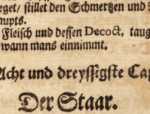 rget / stillet den Schmertzen und
upts.
Fleisch und dessen Decoct, taug
wann mans einnimmt.
Acht und dreyssigste Cap
Der Staar.